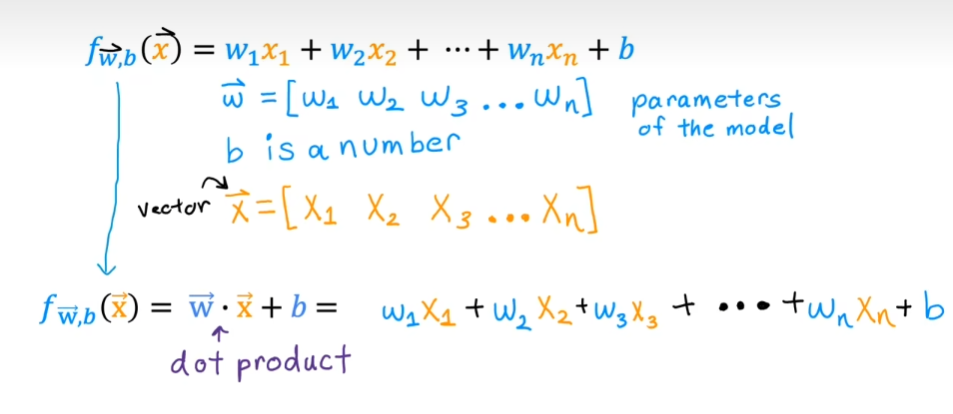 f_{\vec{w},b}(\vec{x}) = w₁x₁ + w₂x₂ + ⋯ + wₙxₙ + b
\vec{w} = [w₁ w₂ w₃ ... wₙ] parameters of the model
b is a number
vector \vec{x} = [x₁ x₂ x₃ ... xₙ]
f_{\vec{w},b}(\vec{x}) = \vec{w} · \vec{x} + b = w₁x₁ + w₂x₂ + w₃x₃ + ⋯ + wₙxₙ + b
dot product